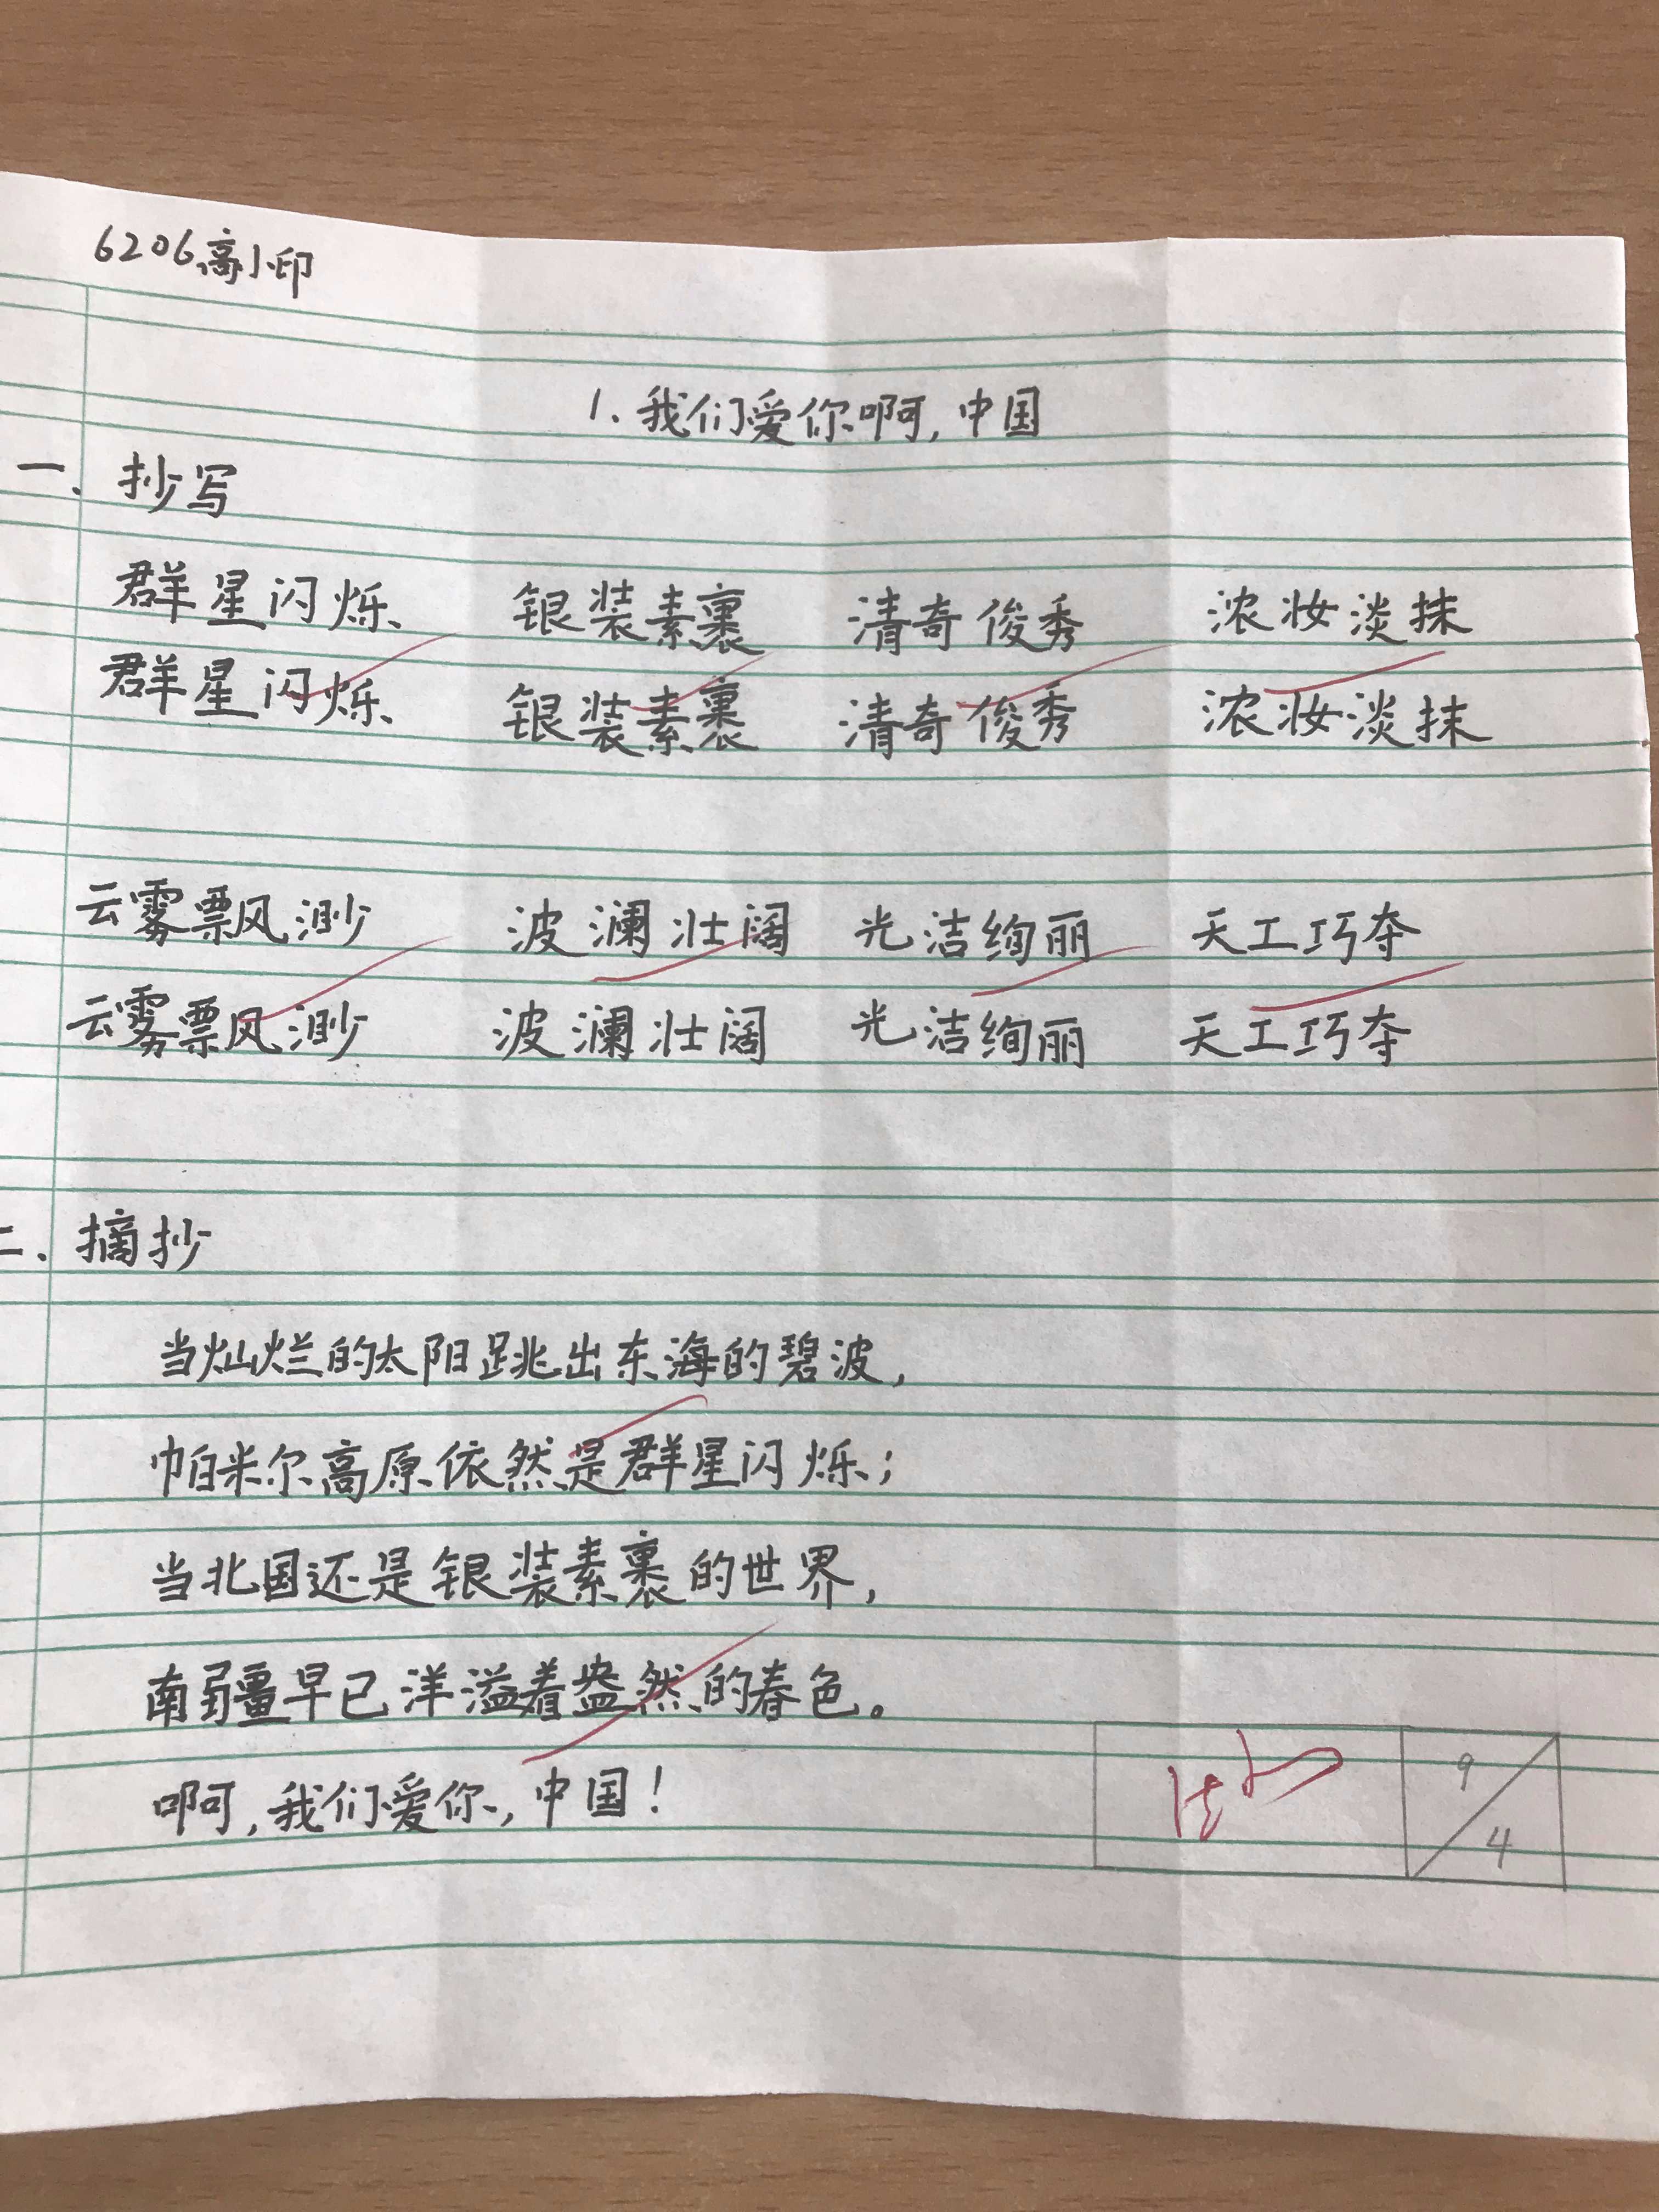 6206高小印
1.我们爱你啊,中国
一、抄写
群星闪烁 银装素裹 清奇俊秀 浓妆淡抹
群星闪烁 银装素裹 清奇俊秀 浓妆淡抹
云雾飘渺 波澜壮阔 光洁绚丽 天工巧夺
云雾飘渺 波澜壮阔 光洁绚丽 天工巧夺
二、摘抄
当灿烂的太阳跳出东海的碧波,
帕米尔高原依然是群星闪烁;
当北国还是银装素裹的世界,
南疆早已洋溢着盎然的春色。
啊,我们爱你,中国!
9/4